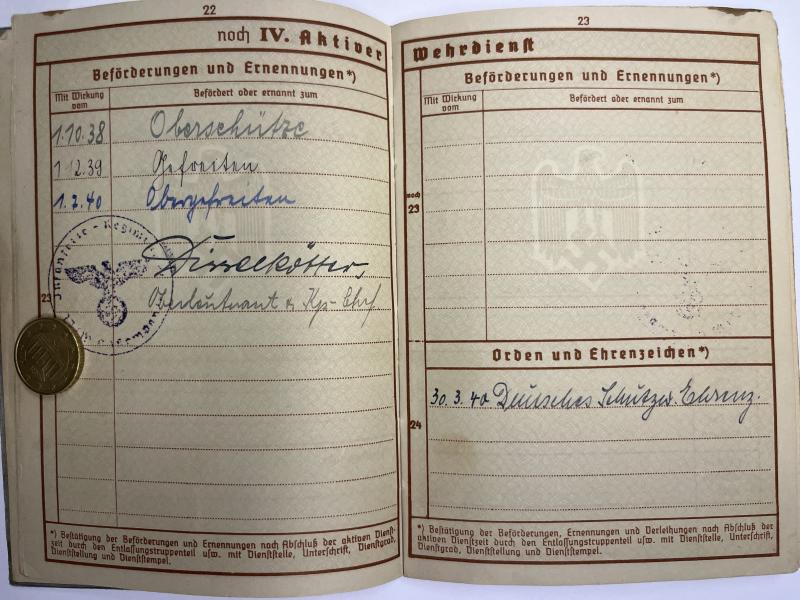 22
noch IV. Aktiver
Beförderungen und Ernennungen*)
Mit Wirkung vom
Befördert oder ernannt zum
1.10.38 Oberschütze
1.12.39 Gefreiten
1.7.40 Obergefreiten
Oberleutnant u. Kp.-Chef
23
*) Bestätigung der Beförderungen und Ernennungen nach Abschluß der aktiven Dienst-
zeit durch den Entlassungstruppenteil usw. mit Dienststelle, Unterschrift, Dienstgrad,
Dienststellung und Dienststempel.
23
Wehrdienst
Beförderungen und Ernennungen*)
Mit Wirkung vom
Befördert oder ernannt zum
noch
23
Orden und Ehrenzeichen*)
30.3.40 Deutsches Schutzw. Ehrenz.
24
*) Bestätigung der Beförderungen, Ernennungen und Verleihungen nach Abschluß der
aktiven Dienstzeit durch den Entlassungstruppenteil usw. mit Dienststelle, Unterschrift,
Dienstgrad, Dienststellung und Dienststempel.